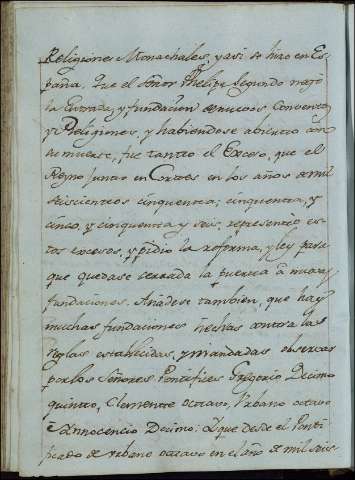 Religiones Monachales, y asi se hizo en Es-
paña, que el Señor Phelipe Segundo negó
la Entrada, y fundacion de nuevos Conventos
y Religiones, y habiendose abierto
fue tanto el Exceso, que el
Reyno junto en Cortes en los años de mil
seiscientos cinquenta; cinquenta, y
cinco, y cinquenta y seis, representó es-
tos excesos, y pidio la reforma, y ley para
que quedase cerrada la puerta a nuevas
fundaciones. Añadese tambien, que hay
muchas fundaciones hechas contra las
reglas establecidas, y mandadas observar
por los Señores Pontifices Gregorio Decimo
quinto, Clemente octavo, Urbano octavo
e Innocencio Decimo: Y que desde el Ponti-
ficado de Urbano octavo en el año de mil seis-